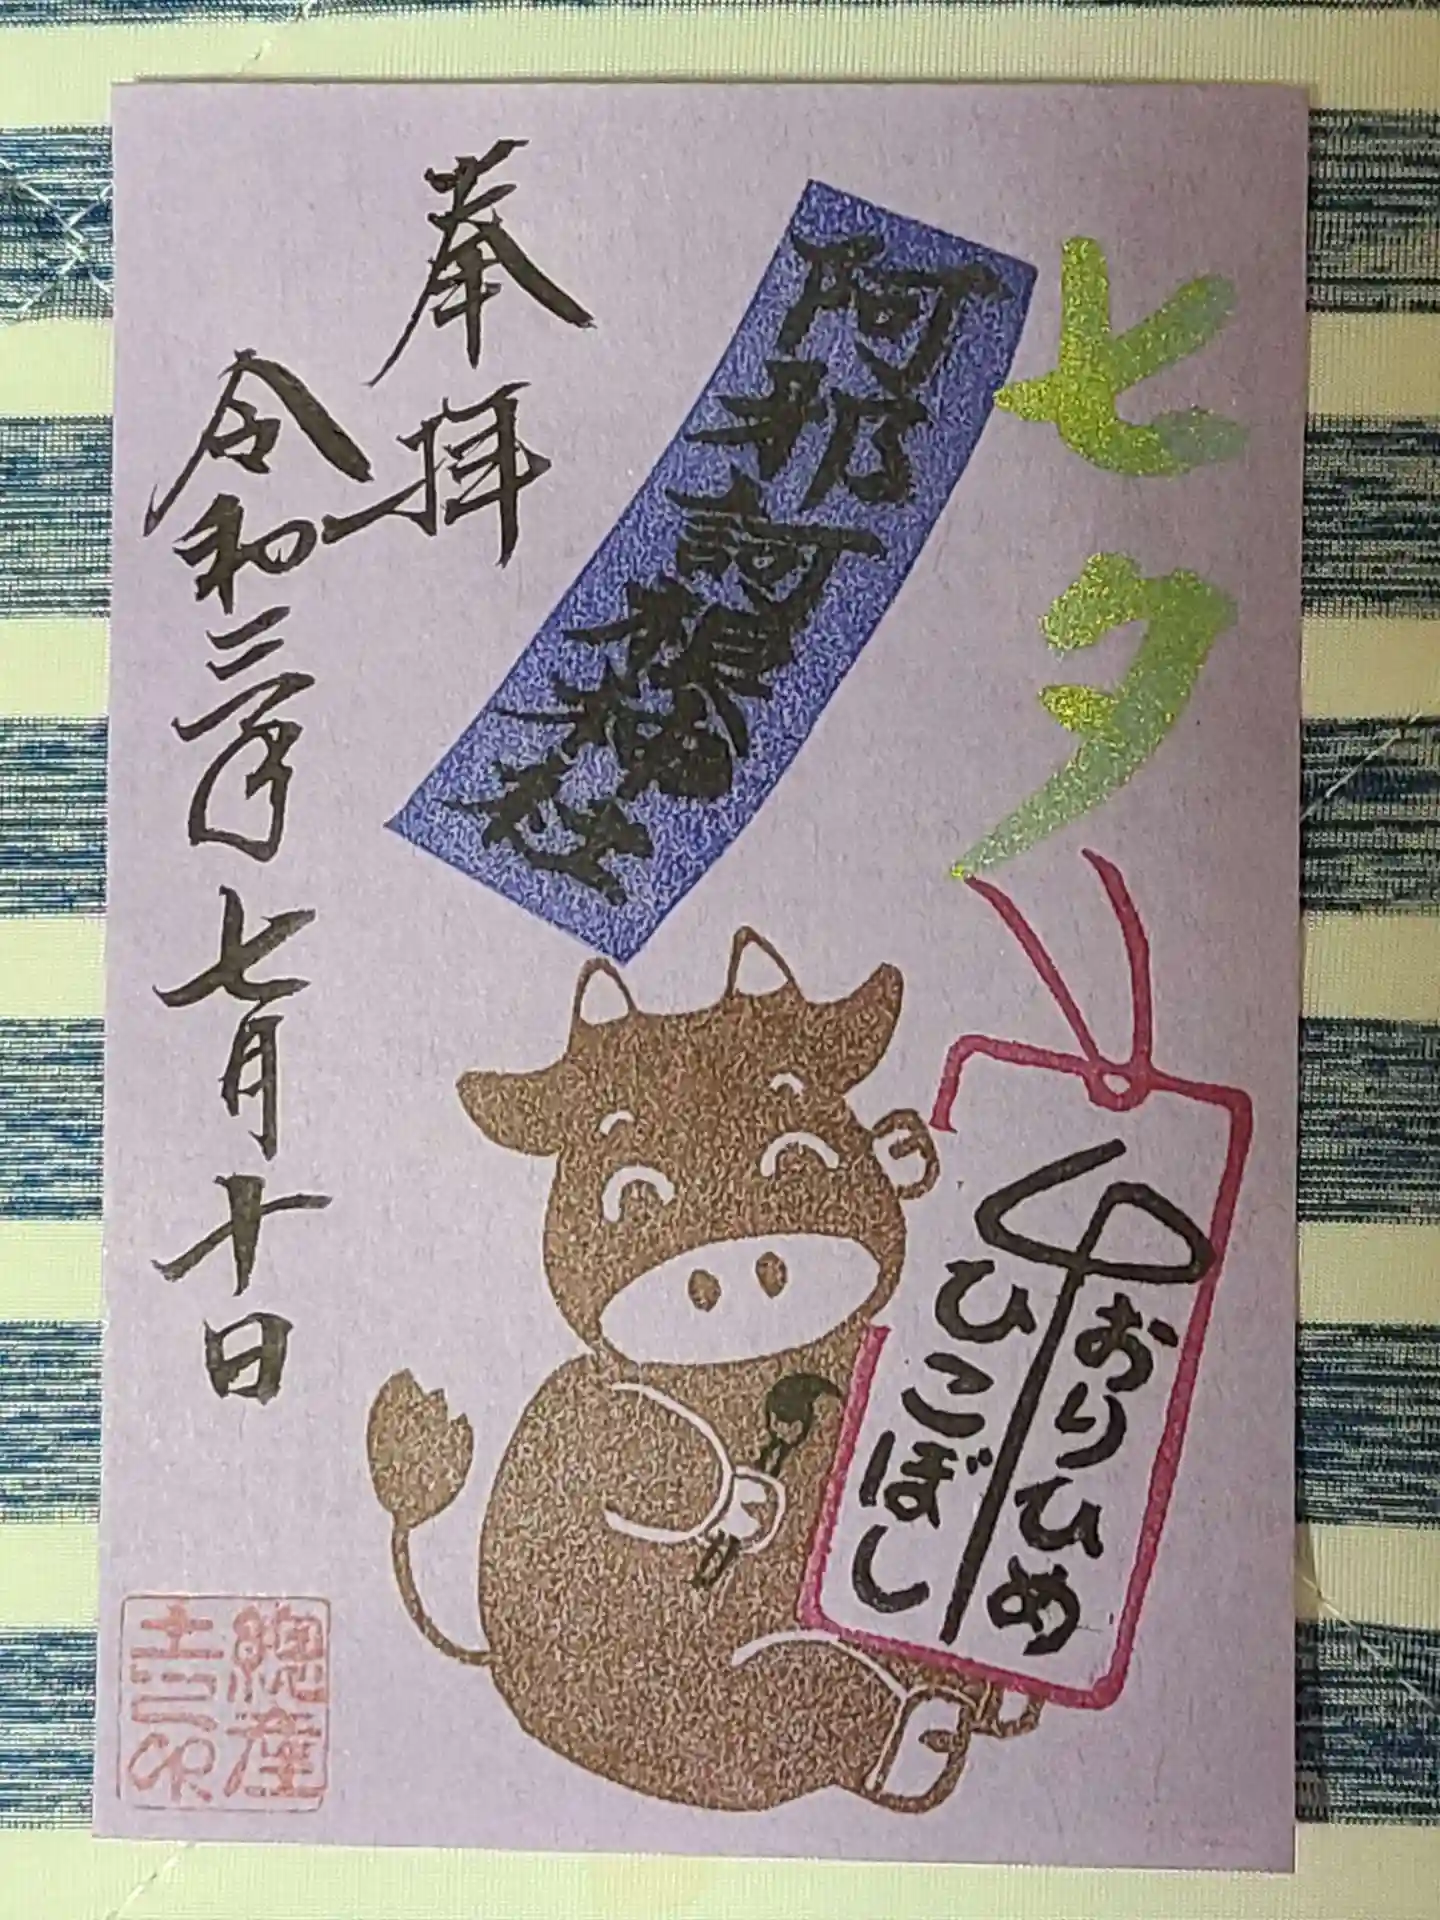 七夕
阿邪訶根神社
奉拝
令和三年七月十日
おりひめ
ひこぼし
総産
土之印